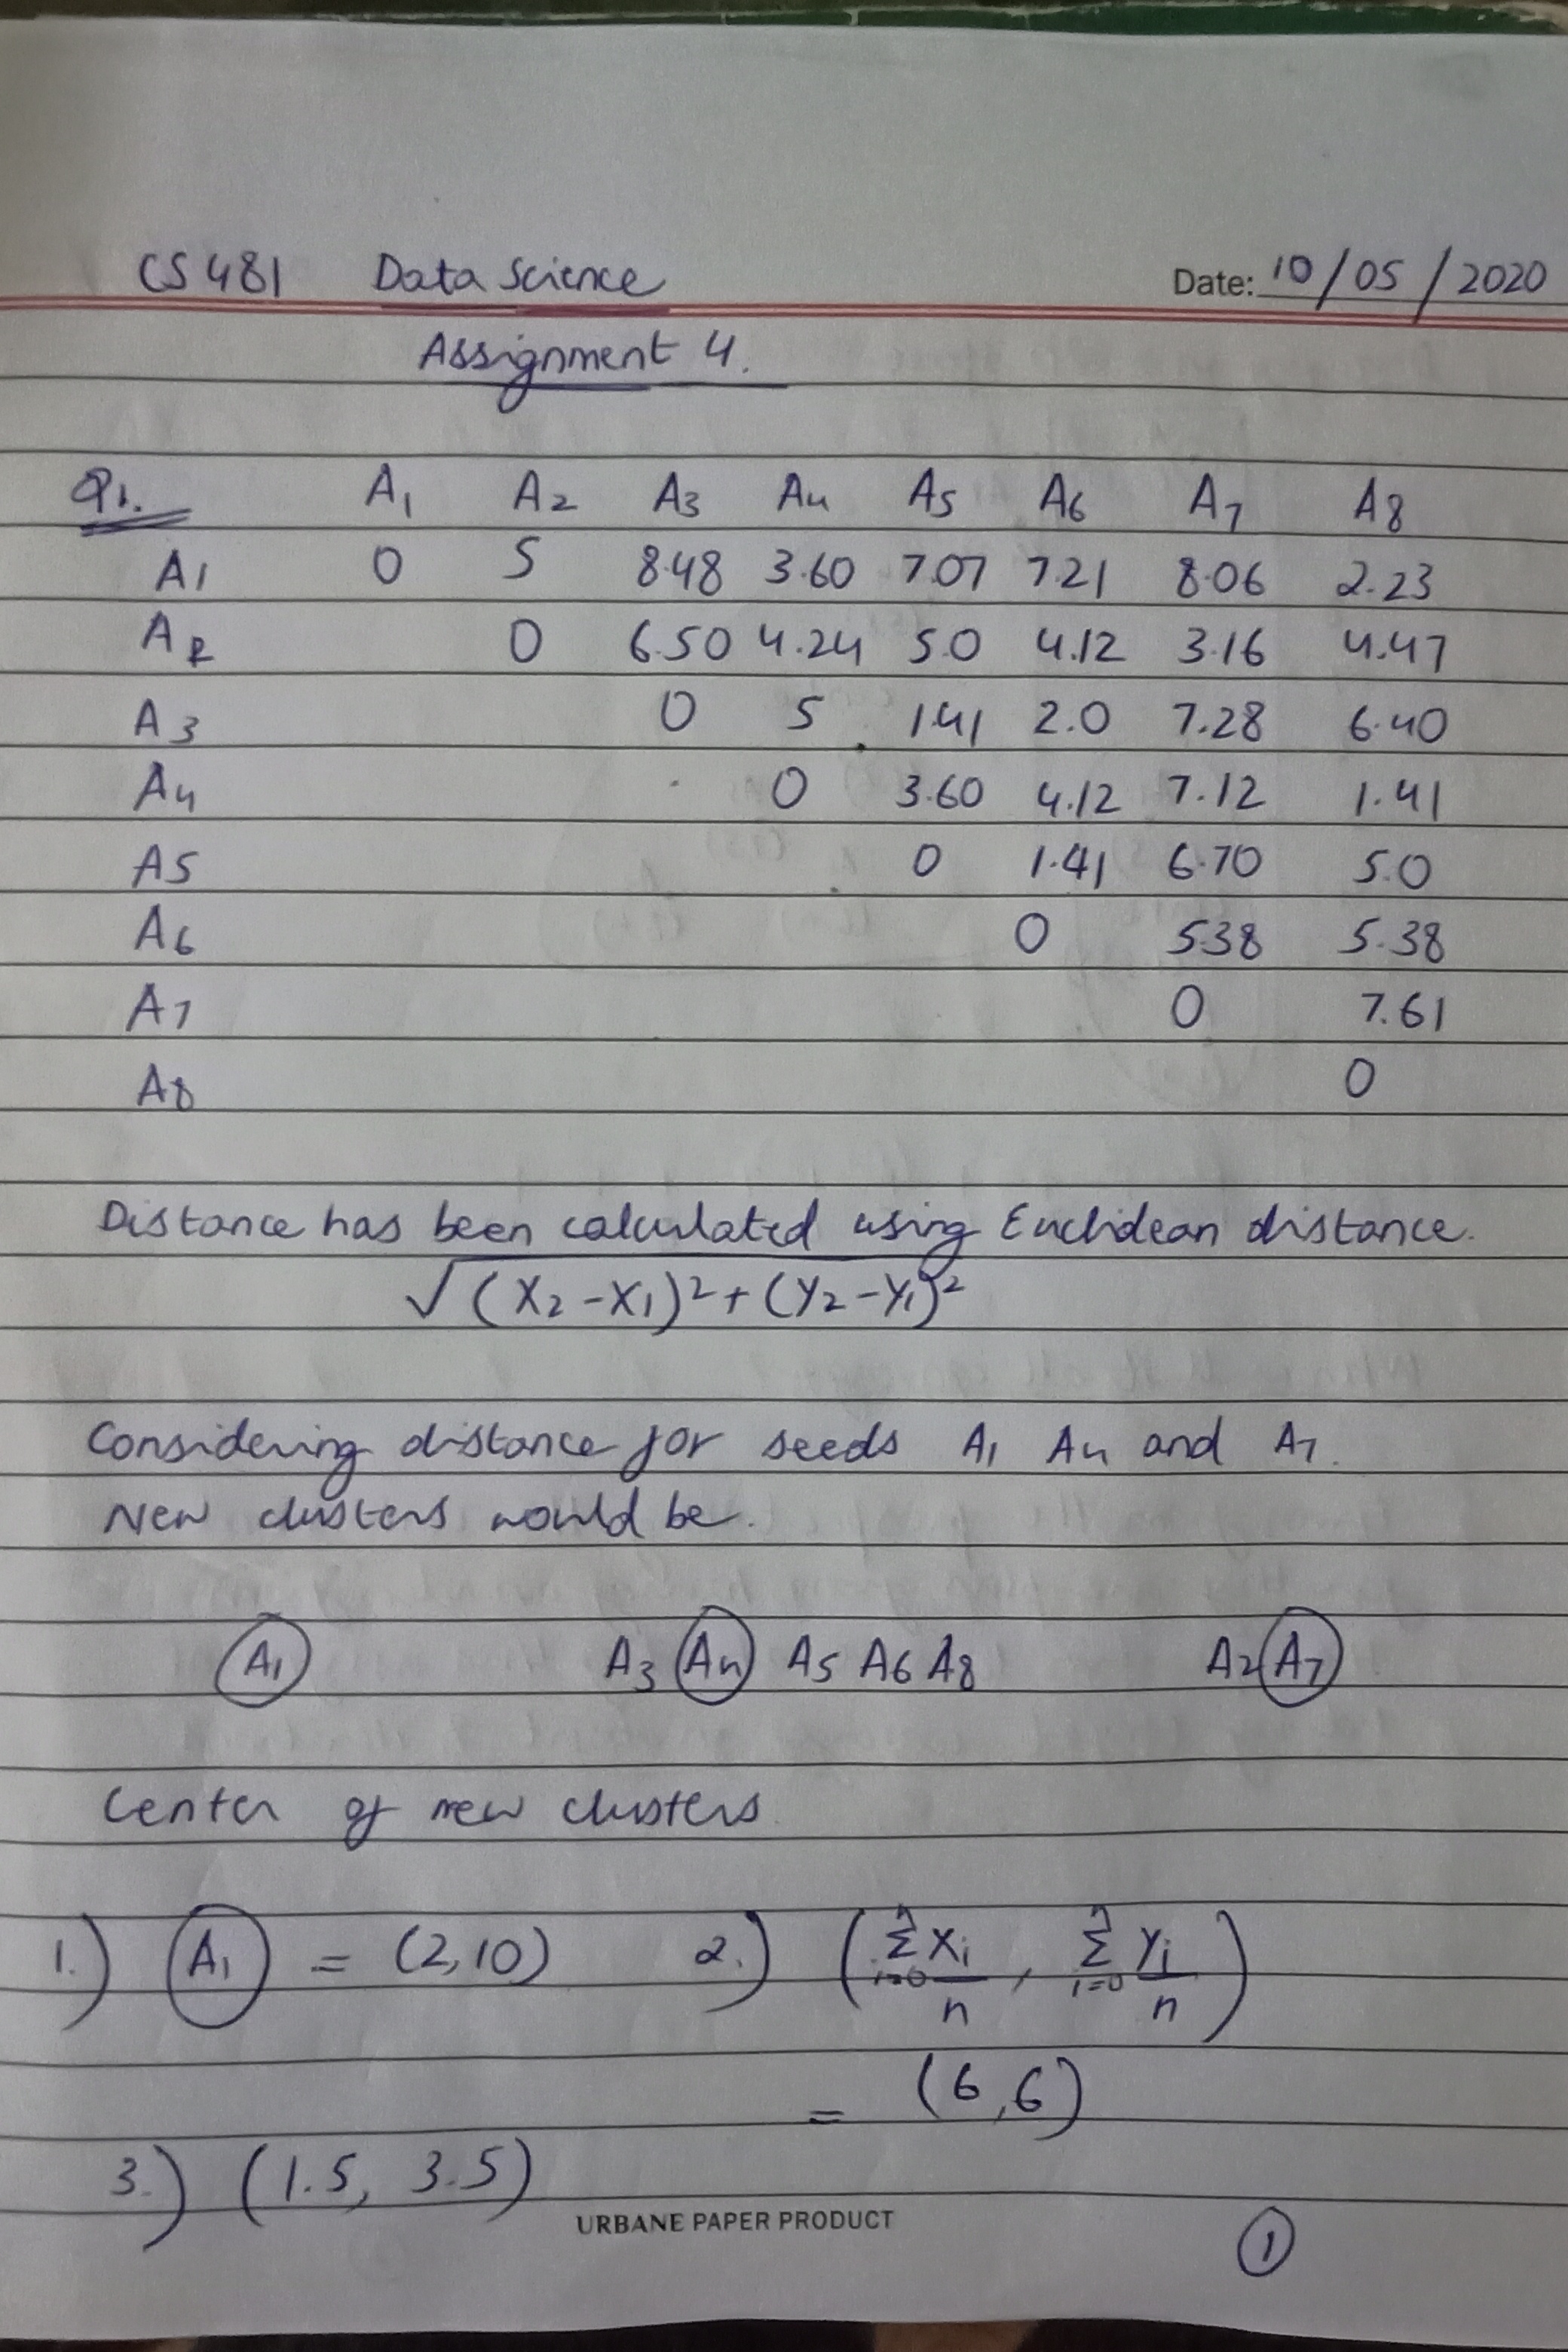 CS 481 Data Science Date: 10/05/2020
Assignment 4.
Q1. A1 A2 A3 A4 A5 A6 A7 A8
A1 0 5 8.48 3.60 7.07 7.21 8.06 2.23
A2 0 6.50 4.24 5.0 4.12 3.16 4.47
A3 0 5 1.41 2.0 7.28 6.40
A4 0 3.60 4.12 7.12 1.41
A5 0 1.41 6.70 5.0
A6 0 5.38 5.38
A7 0 7.61
A8 0
Distance has been calculated using Euclidean distance.
√(X2-X1)²+(Y2-Y1)²
Considering distance for seeds A1 A4 and A7.
New clusters would be.
A1 A3 A4 A5 A6 A8 A2 A7
Center of new clusters
1.) A1 = (2,10) 2.) (n Σ i=0 Xi/n, n Σ i=0 Yi/n)
= (6,6)
3.) (1.5, 3.5)
URBANE PAPER PRODUCT
1